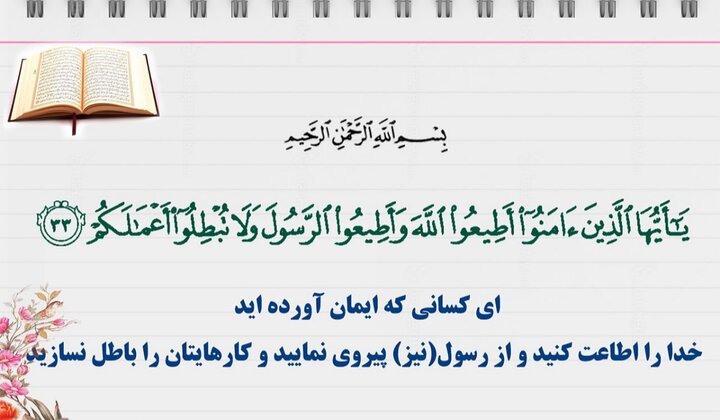 بِسْمِ اللَّهِ الرَّحْمَٰنِ الرَّحِيمِ
يَـٰٓأَيُّهَا ٱلَّذِينَ ءَامَنُوٓا۟ أَطِيعُوا۟ ٱللَّهَ وَأَطِيعُوا۟ ٱلرَّسُولَ وَلَا تُبْطِلُوٓا۟ أَعْمَـٰلَكُمْ ٣٣
ای کسانی که ایمان آورده اید
خدا را اطاعت کنید و از رسول(نیز) پیروی نمایید و کارهایتان را باطل نسازید